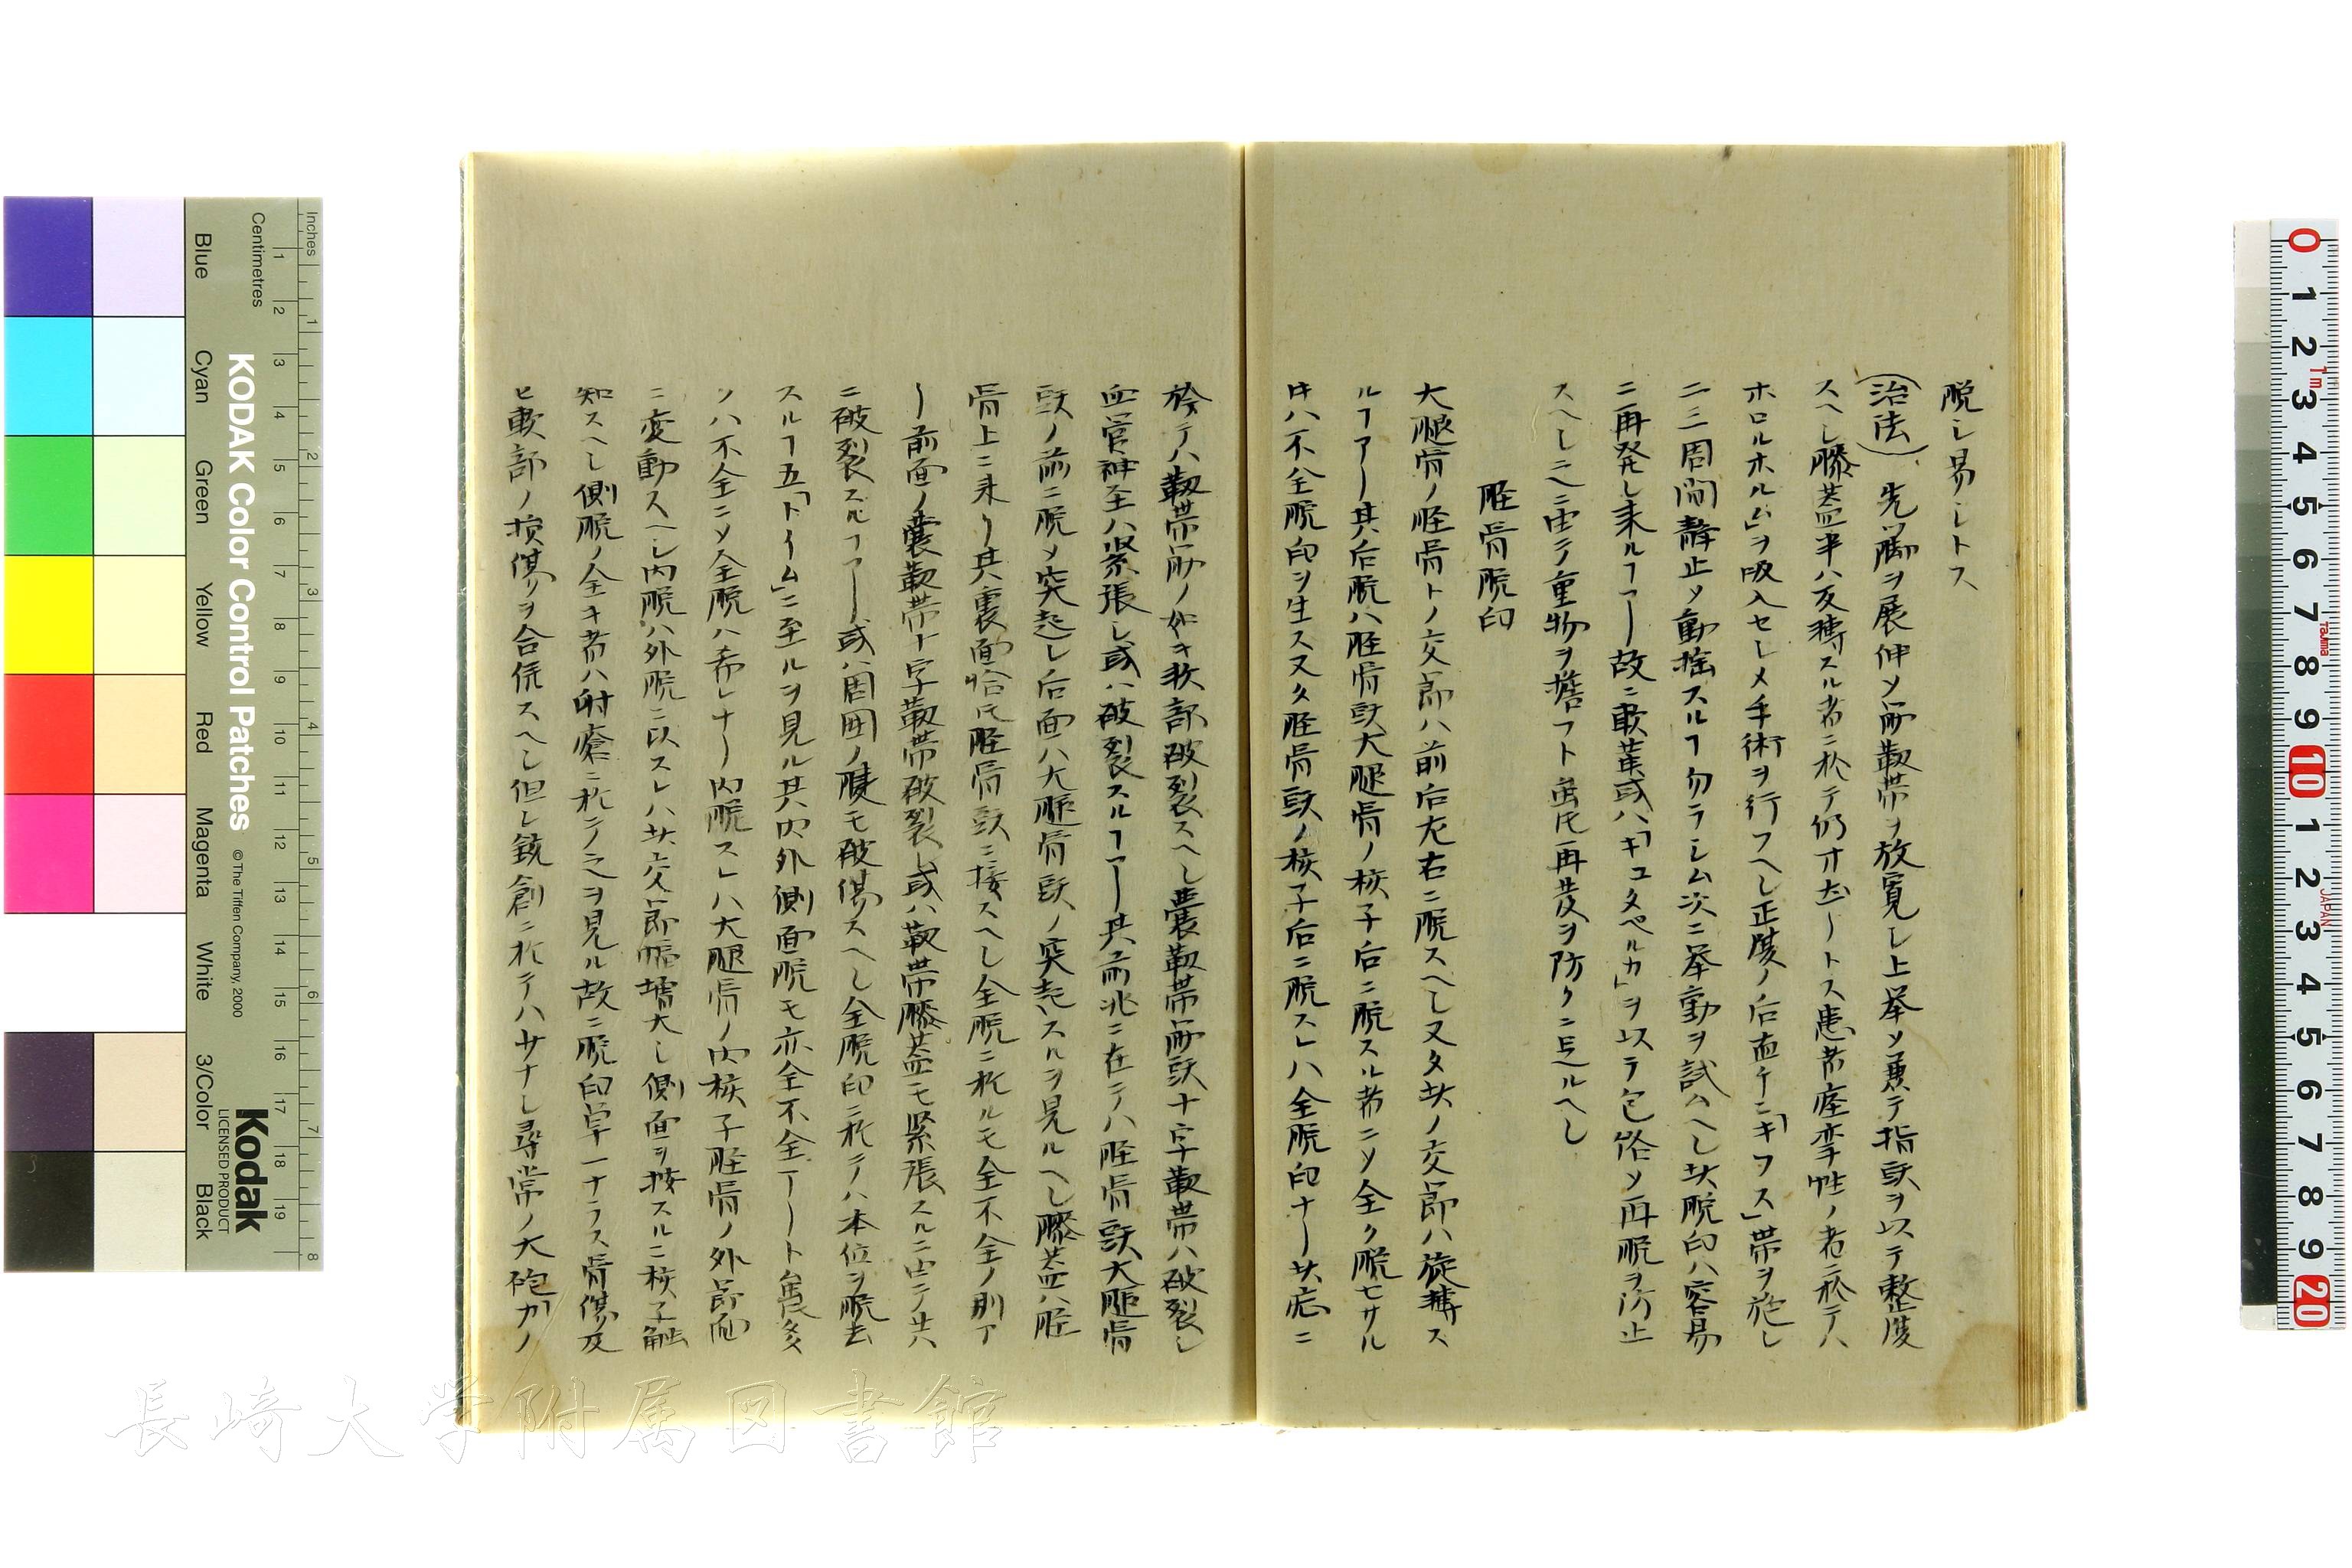 脱シ易シトス
(治法) 先ツ脚ヲ展伸メ筋靱帯ヲ放寛シ上挙メ兼テ指頭ヲ以テ整復
スヘシ膝蓋半ハ反轉スル者ニ於テ仍オ然ートス患者痙挛性ノ者ニ於テハ
ホロルホルム」ヲ吸入セシメ手術ヲ行フヘシ正復ノ后直チニ「キフス」帯ヲ施シ
二三周間靜止メ動揺スルヿ勿ラシム次ニ挙動ヲ試ハヘシ其脱臼ハ容易
ニ再発シ来ルヿアー故ニ軟革或ハ「キュタペルカ」ヲ以テ包絡メ再脱ヲ防止
スヘシ之ニ由テ重物ヲ擔フト虽氏再発ヲ防クニ足ルヘシ
脛骨脱臼
大腿骨ノ脛骨トノ交節ハ前后左右ニ脱スヘシ又タ其ノ交節ハ旋轉ス
ルヿアー其后脱ハ脛骨頭大腿骨ノ核子后ニ脱スル者ニメ全ク脱セサル
片ハ不全脱臼ヲ生ス又タ脛骨頭ノ核子后ニ脱スレハ全脱臼ナー其症ニ
於テハ靱帯筋ノ如キ軟部破裂スヘシ囊靱帯筋頭十字靱帯ハ破裂シ
血管神至ハ緊張シ或ハ破裂スルヿアー其前兆ニ在テハ脛骨頭大腿骨
頭ノ前ニ脱メ突起シ后面ハ大腿骨頭ノ突起スルヲ見ルヘシ膝蓋ハ脛
骨上ニ来リ其裏面恰氏脛骨頭ニ接スヘシ全脱ニ於ルモ全不全ノ別ア
ー前面ノ囊靱帯十字靱帯破裂シ或ハ靱帯膝蓋モ緊張スルニ由テ共
ニ破裂スルヿアー或ハ周囲ノ腱モ破傷スヘシ全脱臼ニ於テハ本位ヲ脱去
スルヿ五「ドイム」ニ至ルヲ見ル其内外側面脱モ亦全不全アート虽氏多
クハ不全ニメ全脱ハ希レナー内脱スレハ大腿骨ノ内核子脛骨ノ外節面
ニ変動スヘシ内脱ハ外脱ニ以スレハ其交節幅增大シ側面ヲ按スルニ核子触
知スヘシ側脱ノ全キ者ハ射瘡ニ於テノ之ヲ見ル故ニ脱臼単一ナラス骨傷及
ヒ軟部ノ損傷ヲ合併スヘシ但シ銃創ニ於テハサナシ尋常ノ大砲カノ
KODAK Color Control Patches © The Tiffen Company, 2000
Kodak
LICENSED PRODUCT
Inches
Centimetres
Blue
Cyan
Green
Yellow
Red
Magenta
White
3/Color
Black
長崎大学附属図書館